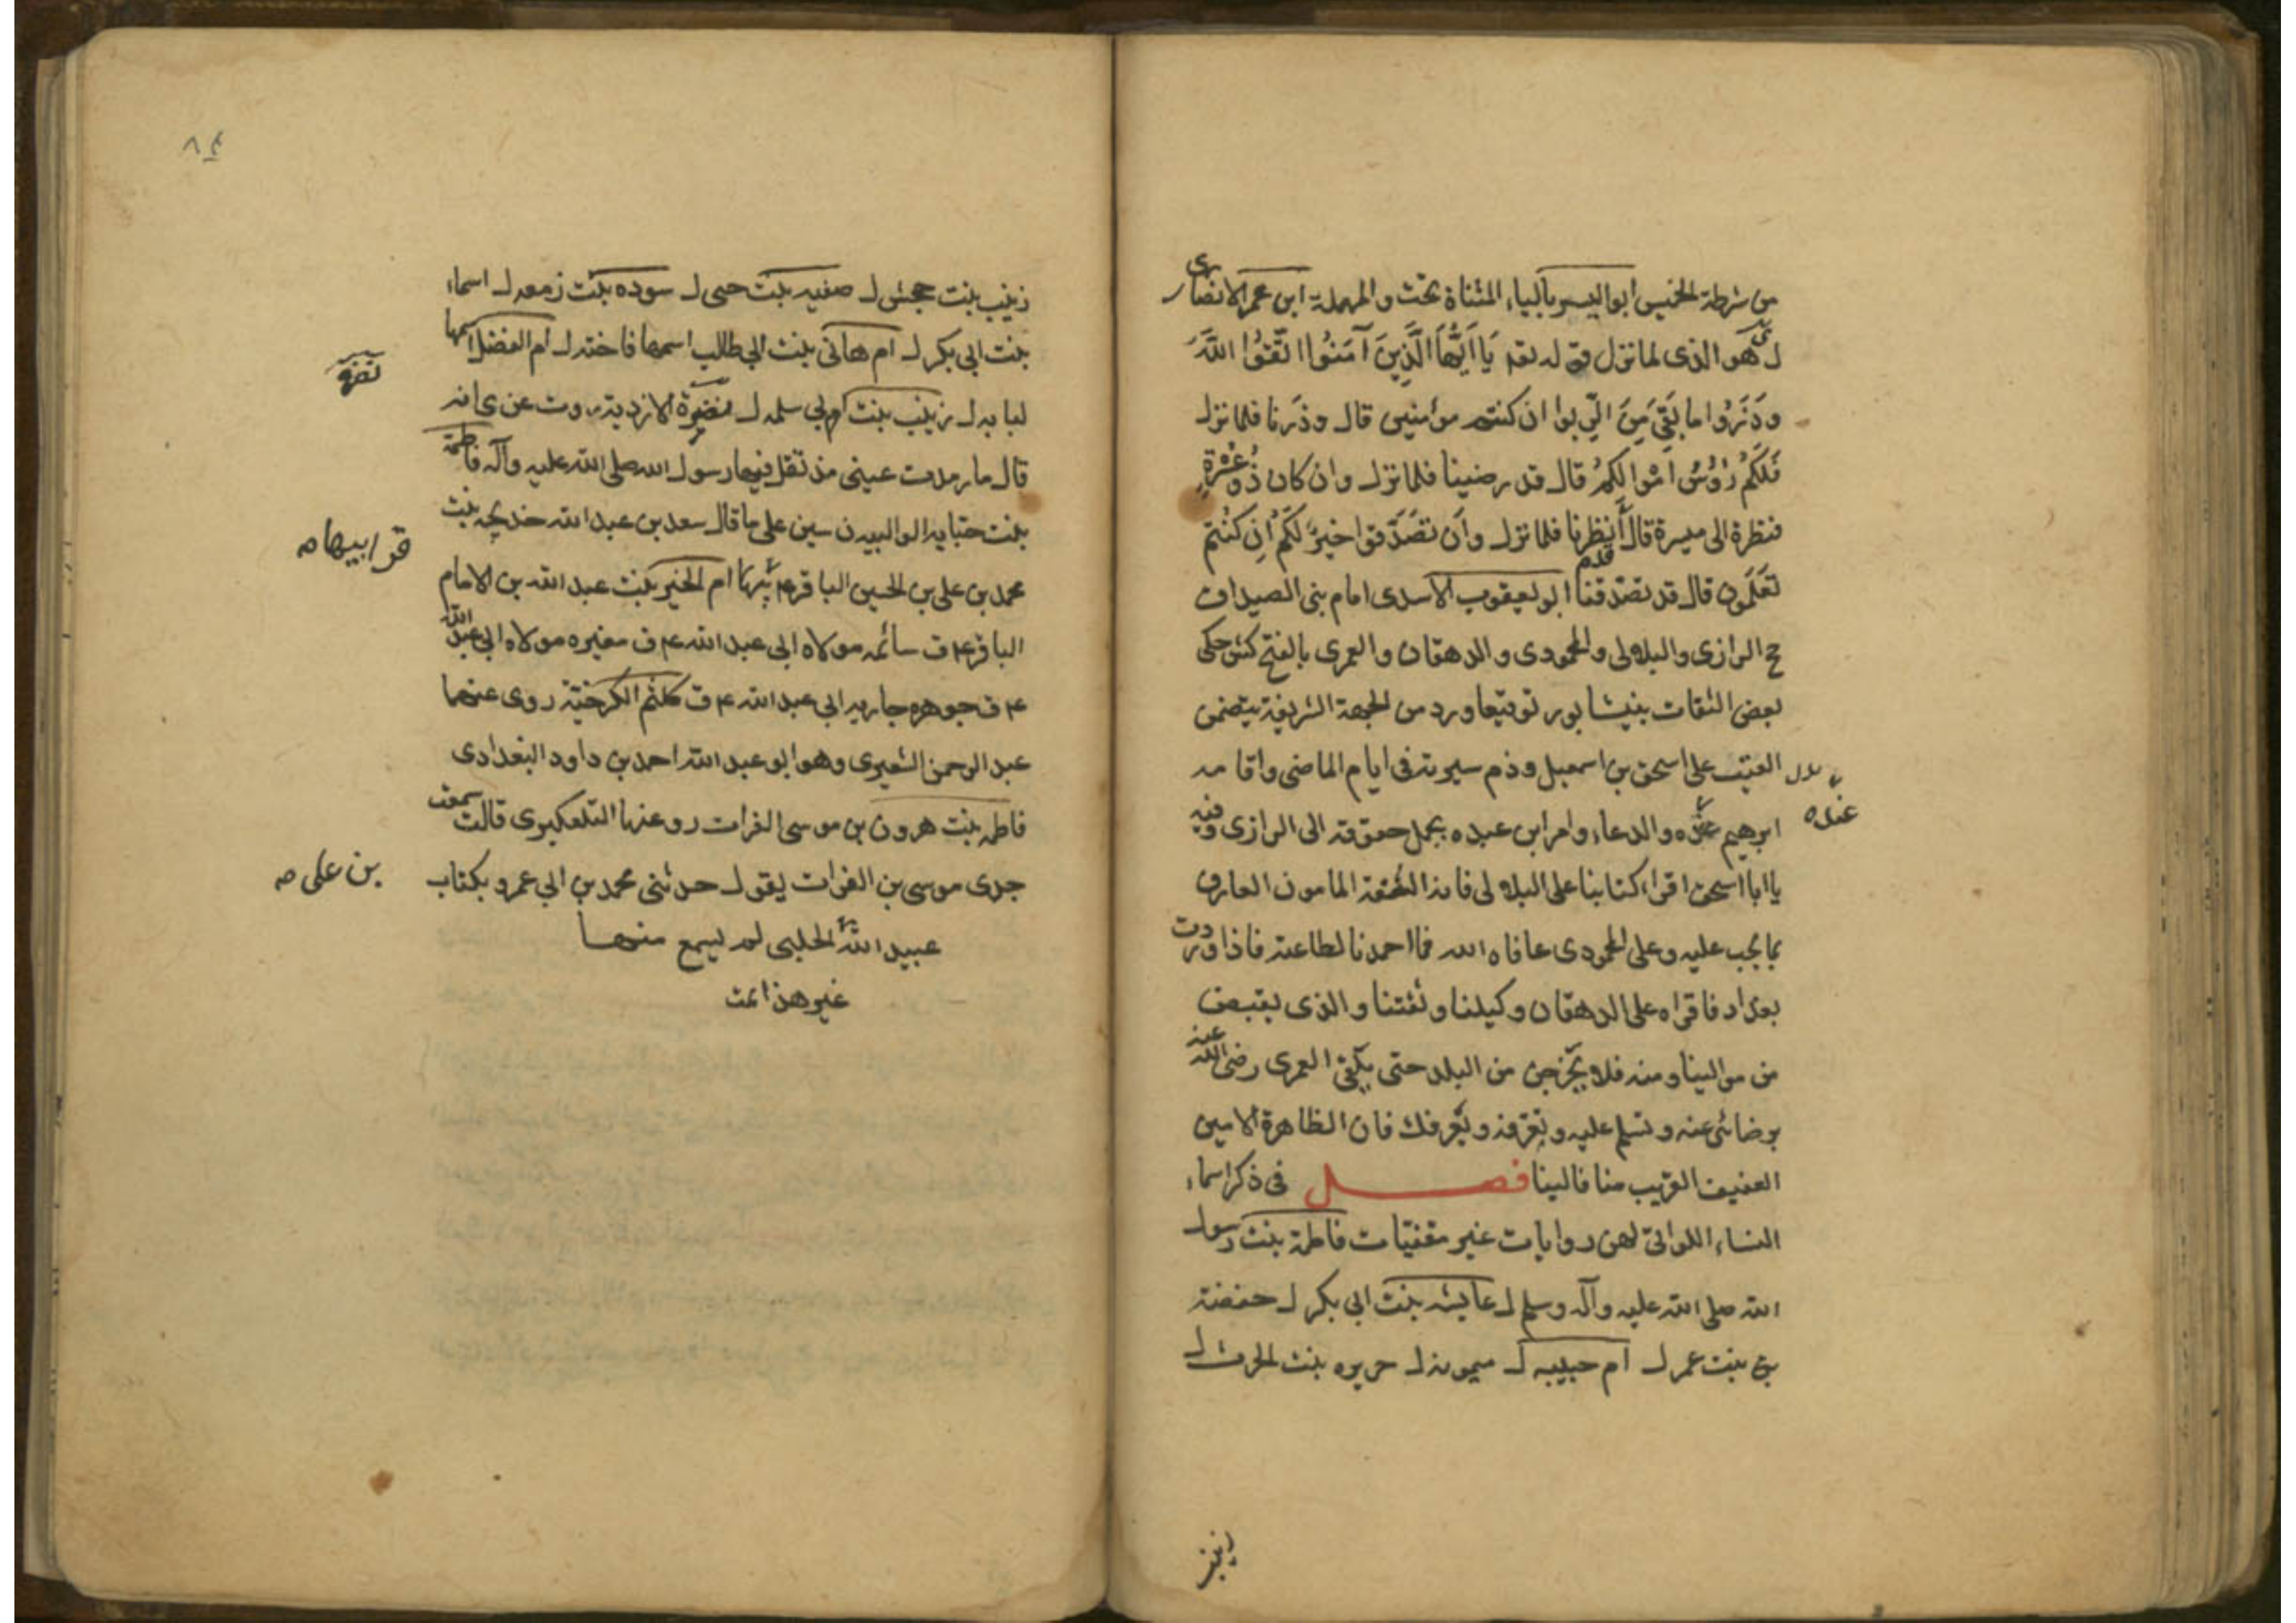 من شرطة الخميس ابو اليسر بالياء المثناة تحت والمهملة ابن عمر الانصاری
ل ی هو الذى لما نزل قوله تعه يَا اَيُّهَا الَّذِينَ آمَنُوا اتَّقُوا اللَّهَ
وذَرُوا ما بَقِيَ مِنَ الرِّبوا ان كنتم مؤمنين قال وذرنا فلما نزل
فَلَكُمْ رُؤُسُ اَمْوالِكُمْ قال قد رضينا فلما نزل وان كان ذُو عُسْرَةٍ
فنظرة الى ميسرة قال أنظرنا فلما نزل وأن تصَدَّقوا خيرٌ لكُم ان كنُتم
تَعَلَمون قال قد تصدقنا ابو يعقوب الاسدى امام بنى الصيدا ق
ج الرازى والبلالى والمحمودى والدهقان والعمرى بالفتح كش حكى
بعض الثقات بنيشابور توقيعا ورد من الجهة الشريفة يتضمن
العتب على اسحق بن اسمعيل وذم سيرته فى ايام الماضى واقامه
ابرهيم عبده والدعاء وامر ابن عبده بحمل حقوقه الى الرازى وفيه
عبده
يا ابا اسحق اقراء كتابنا على البلالى فانه الثقة المامون العارف
بما يجب عليه وعلى المحمودى عافاه الله فما احمدنا لطاعته فاذا وردت
بغداد فاقراه على الدهقان وكيلنا وثقتنا والذى يقبض
من موالينا ومنه فلا تخرجن من البلد حتى تلقى العمرى رضى الله عنه
برضائى عنه وتسلم عليه وتعرفه ويعرفك فان الظاهرة الامين
العفيف القريب منا فالينا فصل فى ذكر اسماء
النساء اللواتى لهن روايات غير مقنيات فاطمة بنت رسول
الله صلى الله عليه وآله وسلم ل عايشه بنت ابى بكر ل حفصة
بن بنت عمر ل ام حبيبه ل ميمونه ل حريره بنت الحرث ل
زينب
٨٤
زينب بنت جحش ل صفيه بنت حيى ل سوده بنت زمعه ل اسماء
بنت ابى بكر ل ام هانى بنت ابى طالب اسمها فاخته ل ام الفضل اسمها
لبابه ل زينب بنت ام بى سلمه ل الازدية روت عن
قال ما رمدت عينى منذ تفل فيها رسول الله صلى الله عليه وآله فاطمة
بنت حبابه الوالبيه ن سين على ما قال سعد بن عبد الله خديجه بنت
قر ابيها صه
محمد بن على بن الحسين الباقر ع ام الخير بنت عبد الله بن الامام
الباقر ع ق سائمه مولاه ابى عبد الله ع ق مغيره مولاه ابى عبد الله
ع ق جوهره جاريه ابى عبد الله ع ق كلثم الكرخية روى عنها
عبد الرحمن الشعيرى وهو ابو عبد الله احمد بن داود البغدادى
فاطمه بنت هرون بن موسى الفرات رو عنها التلعكبرى قالت سمعت
جدى موسى بن الفرات يقول حدثنى محمد بن ابى عمرو بكتاب
بن على صه
عبيد الله الحلبى لم يسمع منها
غير هذا تمت